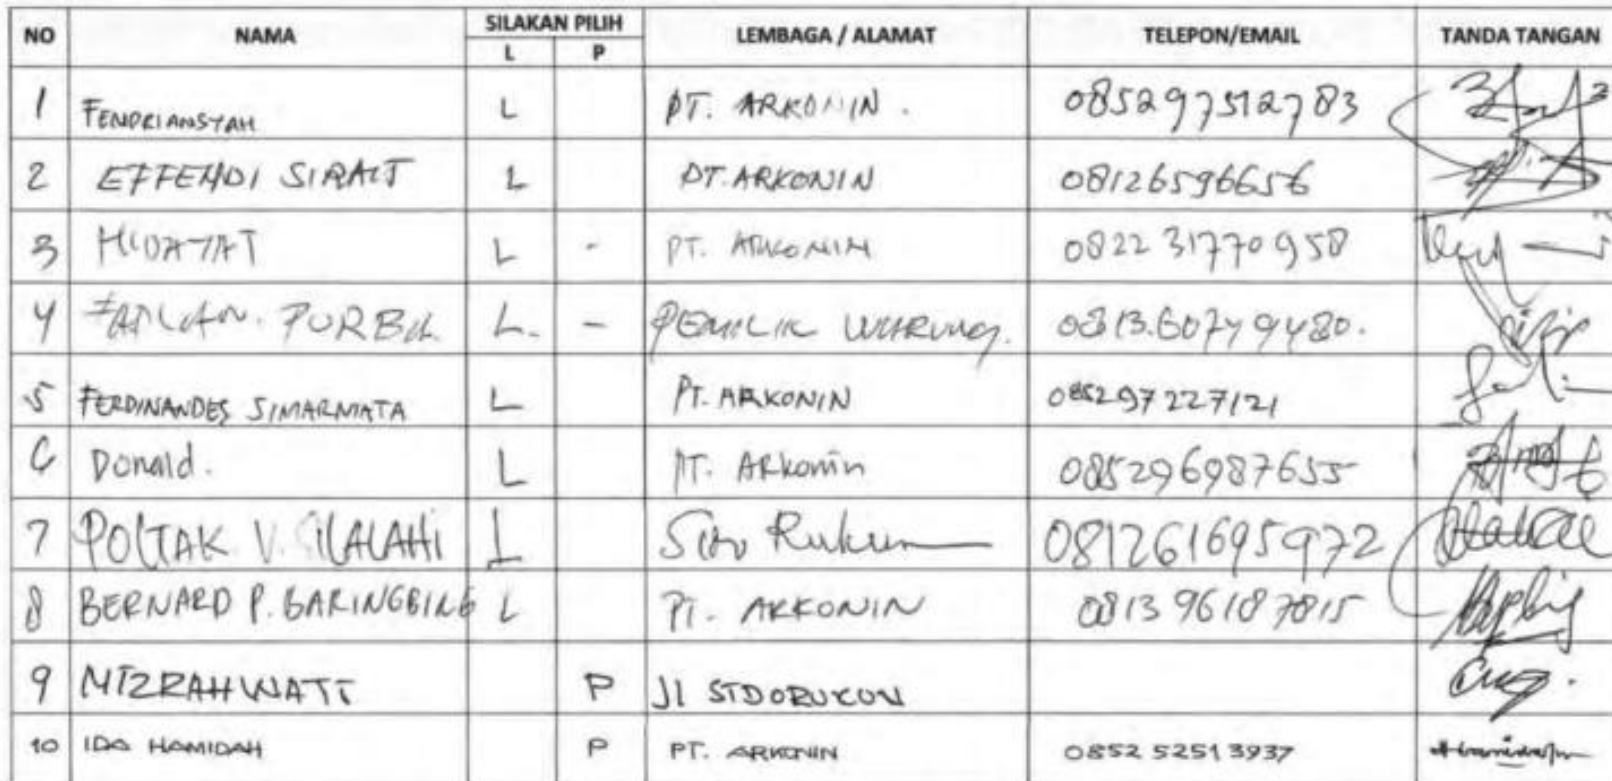 NO NAMA SILAKAN PILIH LEMBAGA / ALAMAT TELEPON/EMAIL TANDA TANGAN
L P
1 FENDRIANSYAH L PT. ARKONIN. 085297512783
2 EFFENDI SIRAIT L PT. ARKONIN 08126596656
3 HIDAYAT L - PT. ARKONIN 0822 31770958
4 PURBA L. - PEMILIK WARUNG. 0813.60749480.
5 FERDINANDES SIMARMATA L PT. ARKONIN 085297227121
6 Donald. L PT. Arkonin 085296987655
7 POLTAK V. SILALAHI L Sido Rukun 081261695972
8 BERNARD P. BARINGBING L PT. ARKONIN 0813 96187815
9 MIZRAHWATI P Jl SIDORUKUN
10 IDA HAMIDAH P PT. ARKONIN 0852 52513937